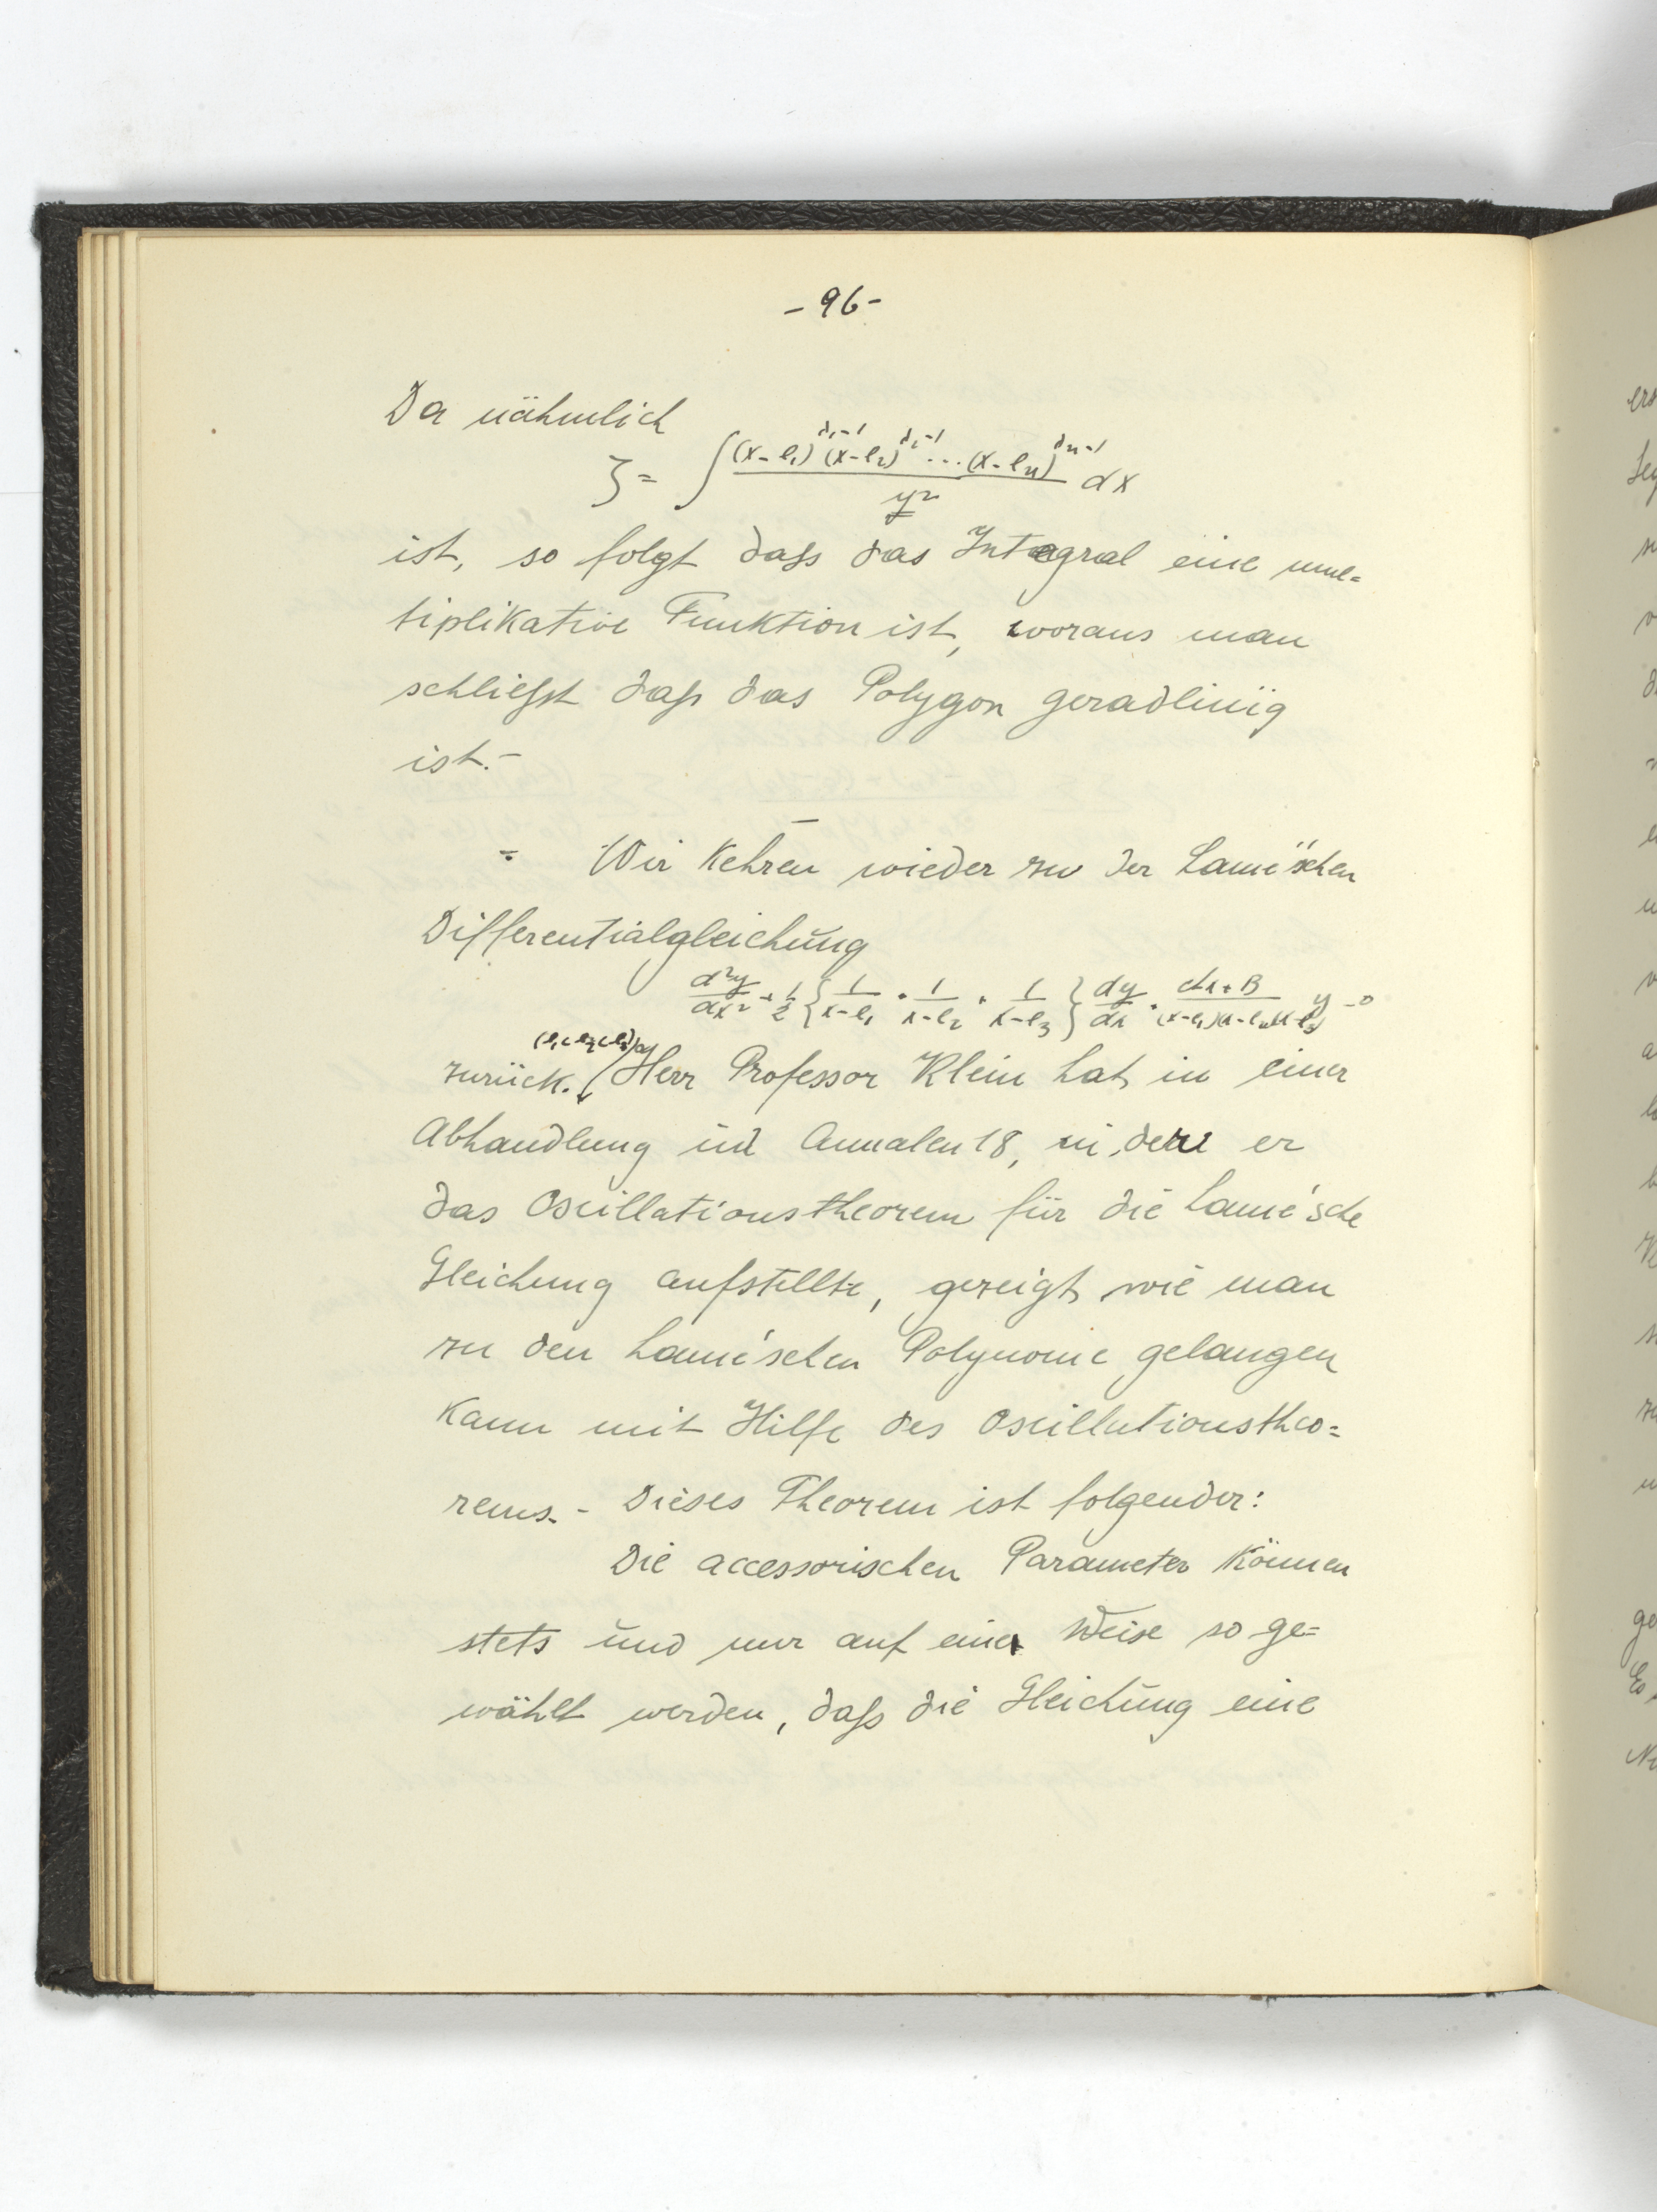 - 96 -
Da nähmlich
ζ = ∫ (x-e₁)^{λ₁-1} (x-e₂)^{λ₂-1} ... (x-eₙ)^{λₙ-1} / y² dx
ist, so folgt daß das Integral eine mul=
tiplikative Funktion ist, woraus man
schließt daß das Polygon geradlinig
ist.-
Wir kehren wieder zu der Lamé'schen
Differentialgleichung
d²y/dx² + 1/2 { 1/(x-e₁) + 1/(x-e₂) + 1/(x-e₃) } dy/dx + (Ax+B)/((x-e₁)(x-e₂)(x-e₃)) y = 0
(e₁<e₂<e₃)
zurück. Herr Professor Klein hat in einer
Abhandlung in Annalen 18, in der er
das Oscillationstheorem für die Lamé'sche
Gleichung aufstellte, gezeigt wie man
zu den Lamé'schen Polynome gelangen
kann mit Hilfe des Oscillationstheo=
rems. - Dieses Theorem ist folgender:
Die accessorischen Parameter können
stets und nur auf eine Weise so ge=
wählt werden, daß die Gleichung eine